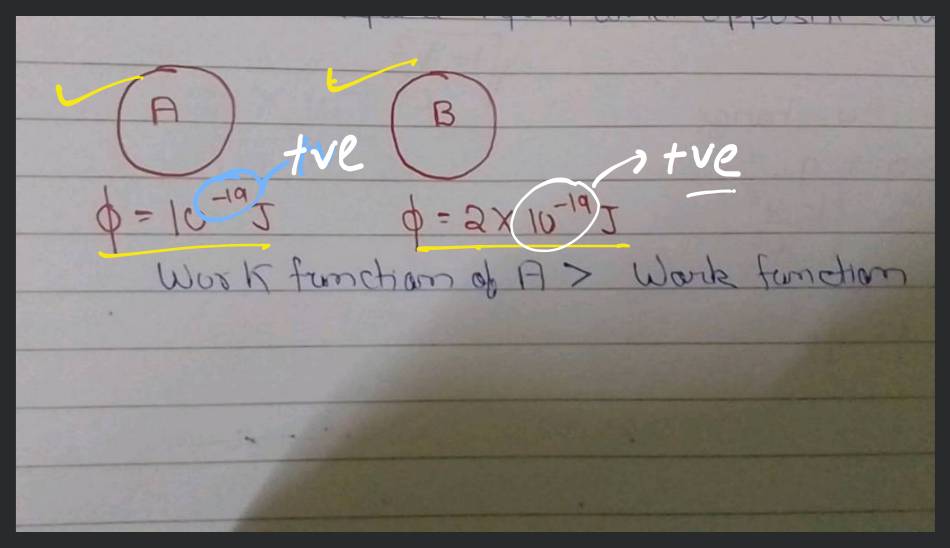 A B
+ve → +ve
ϕ = 10⁻¹⁹ J ϕ = 2 × 10⁻¹⁹ J
Work function of A > Work function